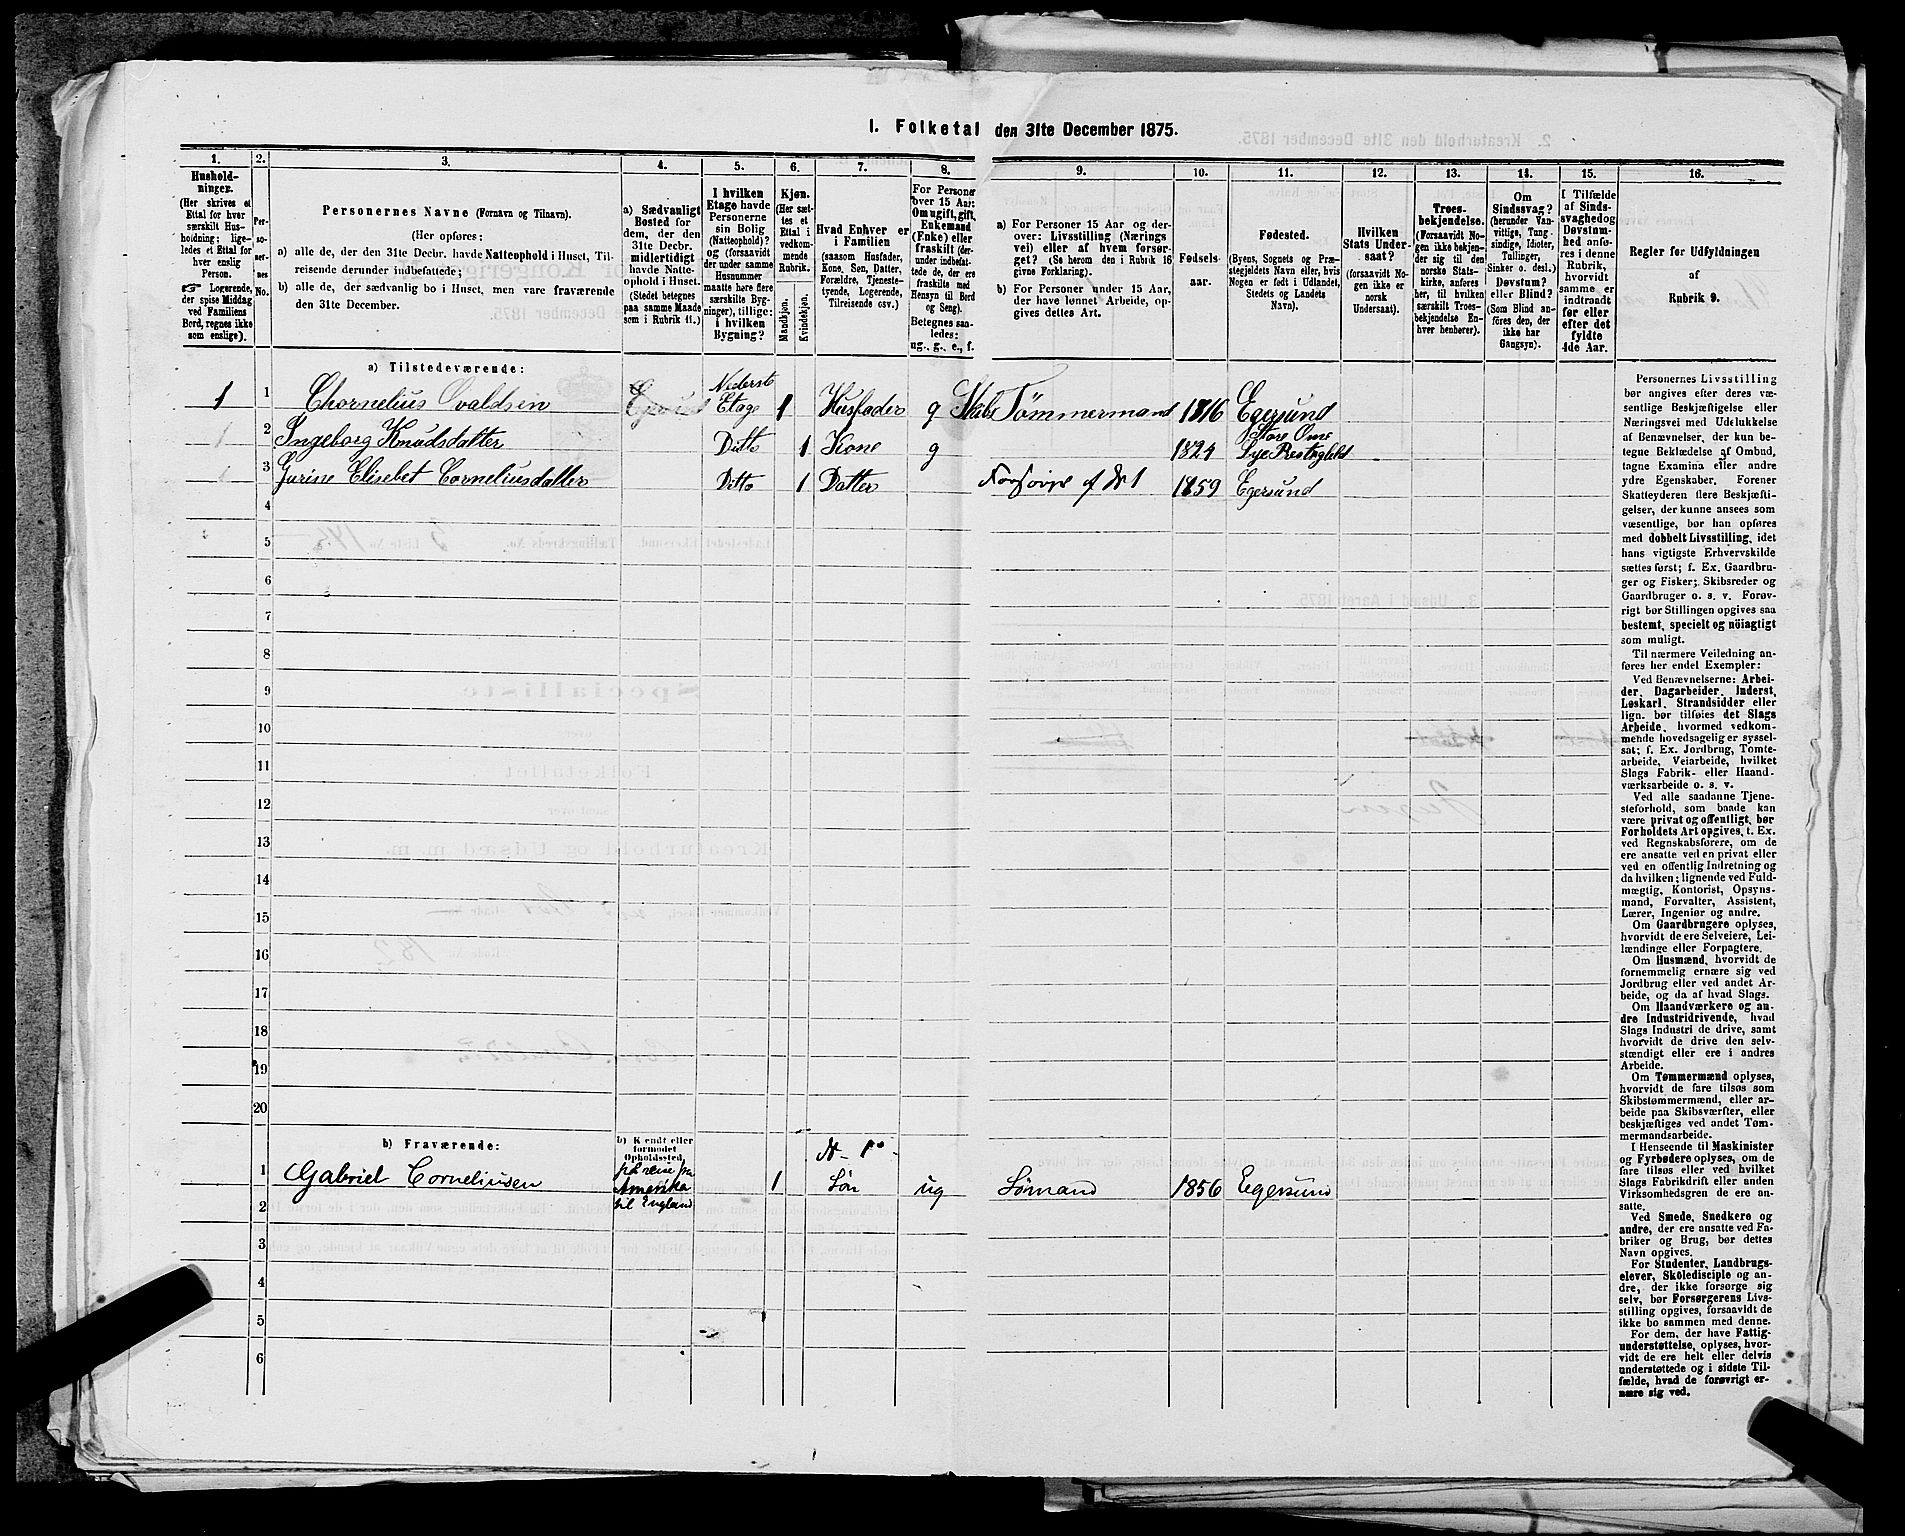 I. Folketal den 31te December 1875.
1. 2. 3. 4. 5. 6. 7. 8. 9. 10. 11. 12. 13. 14. 15. 16.
Hushold-
ninger.
(Her skrives et
Ettal for hver
særskilt Hus-
holdning; lige-
ledes et Ettal for
hver enslig
Person.
☞ Logerende,
der spise Middag
ved Familiens
Bord, regnes ikke
som enslige).
Per-
so-
ner-
nes
No.
Personernes Navne (Fornavn og Tilnavn).
(Her opføres:
a) alle de, der den 31te Decbr. havde Natteophold i Huset, Til-
reisende derunder indbefattede;
b) alle de, der sædvanlig bo i Huset, men vare fraværende
den 31te December.
a) Sædvanligt
Bosted for
dem, der den
31te Decbr.
midlertidigt
havde Natte-
ophold i Huset.
(Stedet betegnes
paa samme Maade
som i Rubrik 11.)
I hvilken
Etage havde
Personerne
sin Bolig
(Natteophold)?
og (forsaavidt
der under samme
Husnummer
maatte høre flere
særskilte Byg-
ninger), tillige:
i hvilken
Bygning?
Kjøn.
(Her sæt-
tes et
Ettal i
vedkom-
mende
Rubrik.
Mandkjøn.
Kvindekjøn.
Hvad Enhver er
i Familien
(saasom Husfader,
Kone, Søn, Datter,
Forældre, Tjeneste-
tyende, Logerende,
Tilreisende csv.)
For Personer
over 15 Aar:
Om ugift, gift,
Enkemand
(Enke) eller
fraskilt (der-
under indbefat-
tede de, der ere
fraskilte med
Hensyn til Bord
og Seng).
Betegnes saa-
ledes:
ug., g., e., f.
a) For Personer 15 Aar og der-
over: Livsstilling (Nærings
vei) eller af hvem forsør-
get? (Se herom den i Rubrik 16
givne Forklaring).
b) For Personer under 15 Aar,
der have lønnet Arbeide, op-
gives dettes Art.
Fødsels-
aar.
Fødested.
(Byens, Sognets og Præ-
stegjeldets Navn eller, hvis
Nogen er født i Udlandet,
Stedets og Landets
Navn).
Hvilken
Stats Under-
saat?
(forsaavidt No-
gen ikke er
norsk
Undersaat).
Troes-
bekjendelse.
(Forsaavidt No-
gen ikke bekjen-
der sig til den
norske Stats-
kirke, anføres
her, til hvilken
særskilt Troes-
bekjendelse En-
hver henhører).
Om
Sindssvag?
(herunder Van-
vittige, Tung-
sindige, Idioter,
Tullinger,
Sinker o. desl.)
Døvstum?
eller Blind?
(Som Blind an-
føres den, der
ikke har
Gangsyn).
I Tilfælde
af Sinds-
svaghed og
Døvstum-
hed anfø-
res i denne
Rubrik,
hvorvidt
samme er
indtraadt
før eller
efter det
fyldte
4de Aar.
Regler for Udfyldningen
af
Rubrik 9.
a) Tilstedeværende:
1 1 Chornelius Ovaldsen Nederste Etage 1 Husfader g Skibs Tømmermand 1816 Egersund
1 2 Ingeborg Knudsdatter Ditto 1 Kone g 1824
3 Gurine Elisebet Corneliusdatter Ditto 1 Datter Forsørges af No 1 1859 Egersund
4
5
6
7
8
9
10
11
12
13
14
15
16
17
18
19
20
b) Fraværende:
b) Kendt eller
formodet
Opholdssted.
No 1
1 Gabriel Corneliusen Amerika til England 1 Søn ug Sømand 1856 Egersund
2
3
4
5
6
Personernes Livsstilling
bør angives efter deres væ-
sentlige Beskjæftigelse eller
Næringsvei med Udelukkelse
af Benævnelser, der kun be-
tegne Beklædelse af Ombud,
tagne Examina eller andre
ydre Egenskaber. Forener
Skatteyderen flere Beskjæfti-
gelser, der kunne ansees som
væsentlige, bør han opføres
med dobbelt Livsstilling, idet
hans vigtigste Erhvervskilde
sættes først; f. Ex. Gaardbru-
ger og Fisker; Skibsreder og
Gaardbruger o. s. v. Forøv-
rigt bør Stillingen opgives saa
bestemt, specielt og nöiagtigt
som muligt.
Til nærmere Veiledning an-
føres her endel Exempler:
Ved Benævnelserne: Arbei-
der, Dagarbeider, Inderst,
Løskarl, Strandsidder eller
lign. bør tilføies det Slags
Arbeide, hvormed vedkom-
mende hovedsagelig er syssel-
sat; f. Ex. Jordbrug, Tomte-
arbeide, Veiarbeide, hvilket
Slags Fabrik- eller Haand-
værksarbeide o. s. v.
Ved alle saadanne Tjene-
steforhold, som baade kan
være privat og offentligt, bør
Forholdets Art opgives, t. Ex.
ved Regnskabsførere, om de
ere ansatte ved en privat eller
ved en offentlig Indretning og
da hvilken; lignende ved Fuld-
mægtig, Kontorist, Opsyns-
mand, Forvalter, Assistent,
Lærer, Ingeniør og andre.
Om Gaardbrugere oplyses,
hvorvidt de ere Selveiere, Lei-
lændinge eller Forpagtere.
Om Husmænd, hvorvidt de
fornemmelig ernære sig ved
Jordbrug eller ved andet Ar-
beide, og da af hvad Slags.
Om Haandværkere og an-
dre Industridrivende, hvad
Slags Industri de drive, samt
hvorvidt de drive den selv-
stændigt eller ere i andres
Arbeide.
Om Tømmermænd oplyses,
hvorvidt de fare tilsøs som
Skibstømmermænd, eller ar-
beide paa Skibsværfter, eller
beskjæftiges ved andet Tøm-
mermandsarbeide.
I Henseende til Maskinister
og Fyrbødere oplyses, om de
fare tilsøs eller ved hvilket
Slags Fabrikdrift eller anden
Virksomhedsgren de ere an-
satte.
Ved Smede, Snedkere og
andre, der ere ansatte ved Fa-
briker og Brug, bør dettes
Navn opgives.
For Studenter, Landbrugs-
elever, Skoledisciple og an-
dre, der ikke forsørge sig
selv, bør Forsørgerens Livs-
stilling opgives, forsaavidt de
ikke bo sammen med denne.
For dem, der have Fattig-
understøttelse, oplyses, hvor-
vidt de ere helt eller delvis
understøttede og i sidste Til-
fælde, hvad de forøvrigt er-
nære sig ved.